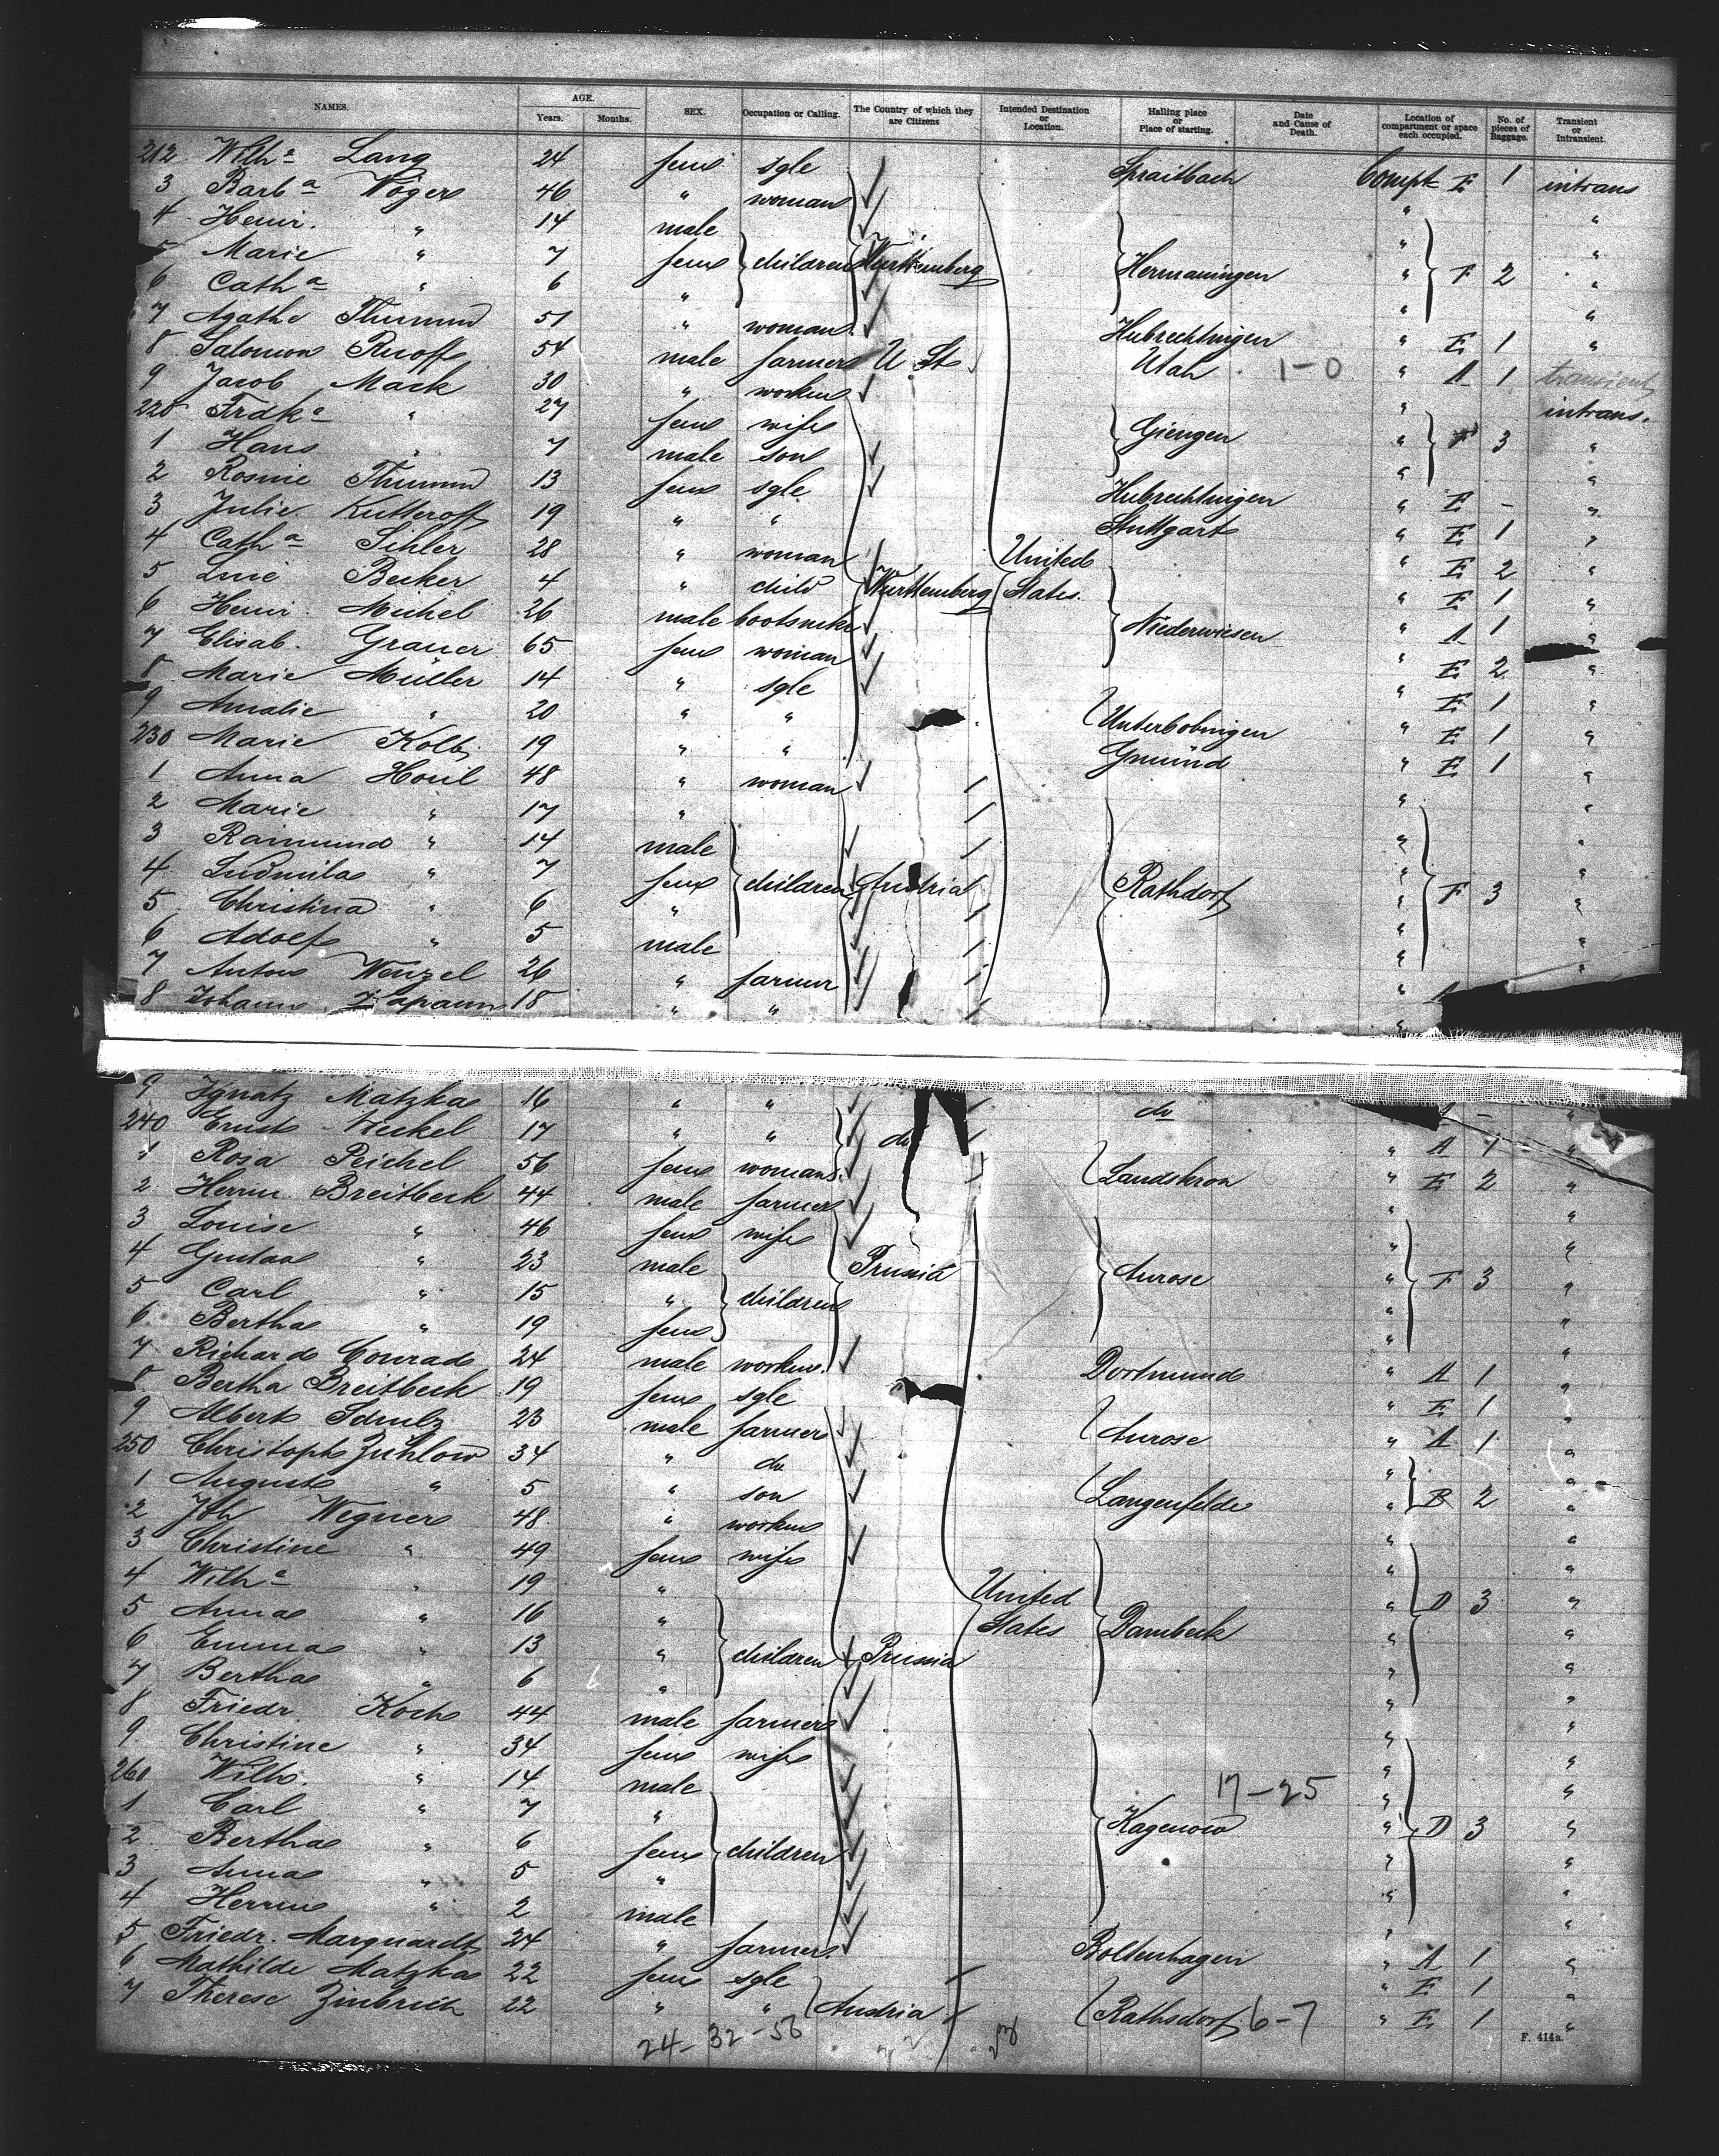 NAMES. AGE. SEX. Occupation or Calling. The Country of which they are Citizens Intended Destination or Location. Halling place or Place of starting. Date and Cause of Death. Location of compartment or space each occupied. No. of pieces of Baggage. Transient or Intransient.
Years. Months.
212 Wilh a Lang 24 fem sgle Spraitbach Compt E 1 intrans
3 Barb a 46 " woman " "
4 Heinr. " 14 male " "
5 Marie " 7 fem children Württemberg Hermaringen " F 2 "
6 Cath a " 6 " " "
7 Agathe 51 " woman Hubrechtingen " E 1 "
8 Salomon Ruoff 54 male farmer U St. Utah 1-0 " A 1 transient
9 Jacob Mack 30 " worker " intrans.
220 Frdke " 27 fem wife Giengen " F 3 "
1 Hans " 7 male son " "
2 Rosine 13 fem sgle Hubrechtingen " E - "
3 Julie Kutteroff 19 " " Stuttgart " E 1 "
4 Cath a Sihler 28 " woman United " E 2 "
5 Becker 4 " child Württemberg States. " E 1 "
6 Heinr. Michel 26 male bootsmkr Niederwiesen " A 1 "
7 Elisab. Grauer 65 fem woman " E 2 "
8 Marie Müller 14 " sgle " E 1 "
9 Amalie " 20 " " Unterbobingen " E 1 "
230 Marie Kolb 19 " " Gmünd " E 1 "
1 Anna 48 " woman " "
2 Marie " 17 " " "
3 Raimund " 14 male " "
4 Ludmila " 7 fem children Austria Rathsdorf " F 3 "
5 Christina " 6 " " "
6 Adolf " 5 male " "
7 Anton Wenzel 26 " farmer " A
8 Johann 18 " " "
9 Ignatz Matzka 16 " " do - "
240 Ernst Heckel 17 " " do " A 1 "
1 Rosa Peichel 56 fem woman Landskron " E 2 "
2 Herm. Breitbeck 44 male farmer " "
3 Louise " 46 fem wife " "
4 Gustav " 23 male Prussia Aurose " F 3 "
5 Carl " 15 " children " "
6 Bertha " 19 fem " "
7 Richard Conrad 24 male worker Dortmund " A 1 "
8 Bertha Breitbeck 19 fem sgle " E 1 "
9 Albert Schulz 23 male farmer Aurose " A 1 "
250 Christoph Zühlow 34 " do " "
1 August " 5 " son Langenfelde " B 2 "
2 Joh Wegner 48 " worker " "
3 Christine " 49 fem wife " "
4 Wilh a " 19 " United " D 3 "
5 Anna " 16 " States Dambeck " "
6 Emma " 13 " children Prussia " "
7 Bertha " 6 " " "
8 Friedr. Koch 44 male farmer " "
9 Christine " 34 fem wife " "
260 Wilh. " 14 male 17-25 " "
1 Carl " 7 " Kagenow " D 3 "
2 Bertha " 6 fem children " "
3 Anna " 5 " " "
4 Herm " 2 male " "
5 Friedr. Marquardt 24 " farmer Boltenhagen " A 1 "
6 Mathilde Matzka 22 fem sgle " E 1 "
7 Therese 22 " " Austria Rathsdorf 6-7 " E 1 "
24-32-56
F. 414a.